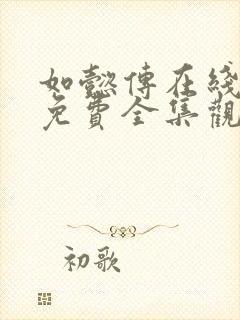 如懿傳在綫
免費全集觀
初歌